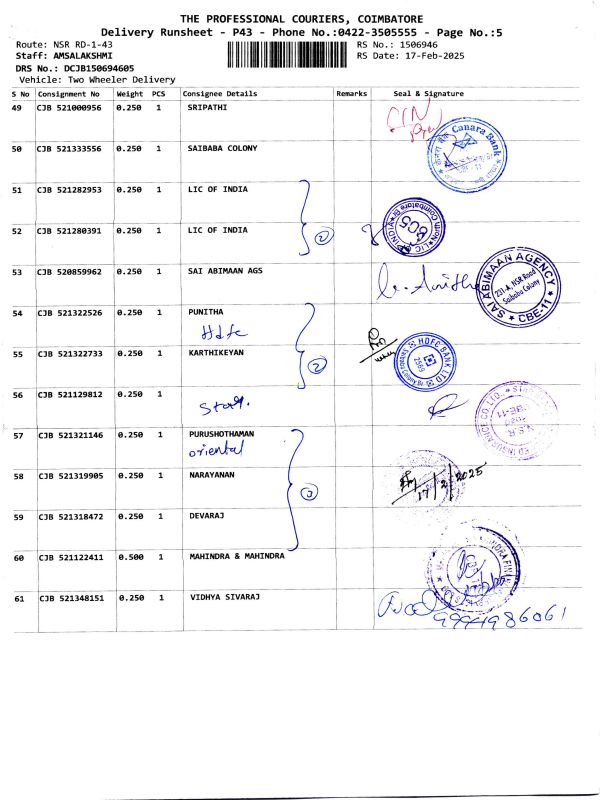 THE PROFESSIONAL COURIERS, COIMBATORE
Delivery Runsheet - P43 - Phone No.:0422-3505555 - Page No.:5
Route: NSR RD-1-43 RS No.: 1506946
Staff: AMSALAKSHMI RS Date: 17-Feb-2025
DRS No.: DCJB150694605
Vehicle: Two Wheeler Delivery
S No Consignment No Weight PCS Consignee Details Remarks Seal & Signature
49 CJB 521000956 0.250 1 SRIPATHI
Canara Bank
50 CJB 521333556 0.250 1 SAIBABA COLONY
51 CJB 521282953 0.250 1 LIC OF INDIA
2
52 CJB 521280391 0.250 1 LIC OF INDIA
53 CJB 520859962 0.250 1 SAI ABIMAAN AGS
SAI ABIMAAN AGENCY
231-A, NSR Road
Saibaba Colony
* CBE-11 *
54 CJB 521322526 0.250 1 PUNITHA
Hdfc
2
HDFC BANK LTD
55 CJB 521322733 0.250 1 KARTHIKEYAN
56 CJB 521129812 0.250 1
Star.
57 CJB 521321146 0.250 1 PURUSHOTHAMAN
oriental
58 CJB 521319905 0.250 1 NARAYANAN
17/2/2025
59 CJB 521318472 0.250 1 DEVARAJ
60 CJB 521122411 0.500 1 MAHINDRA & MAHINDRA
61 CJB 521348151 0.250 1 VIDHYA SIVARAJ